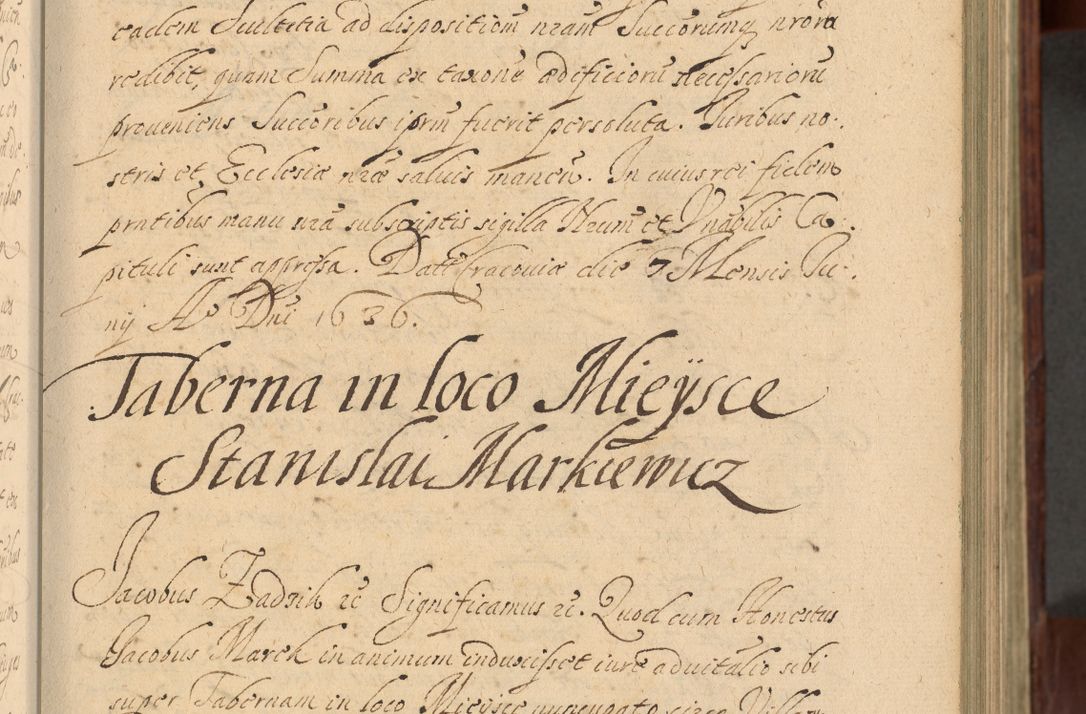 eadem Scultetia ad dispositionẽ nram̃ Succorumq̃ nrorũ
redibit, quam Summa ex taxone ædificiorũ necessariorũ
proueniens Succoribus iprm̃ fuerit persoluta. Juribus no:
stris et Ecclesiæ nræ saluis manen̄. In cuius rei fidem
prntibus manu nrã subscriptis sigilla Nrum et Vnãbilis Ca:
pituli sunt appressa. Dat Cracouiæ die 7 Mensis Ju:
nij Aº Dni 1636.
Taberna in loco Mieÿsce
Stanislai Markiewicz
Jacobus Zadzik ec Significamus ec. Quod cum Honestus
Jacobus Marek in animum induxisset iure aduitalio sibi
super Tabernam in loco Mieÿsce nuncupato circa Villam